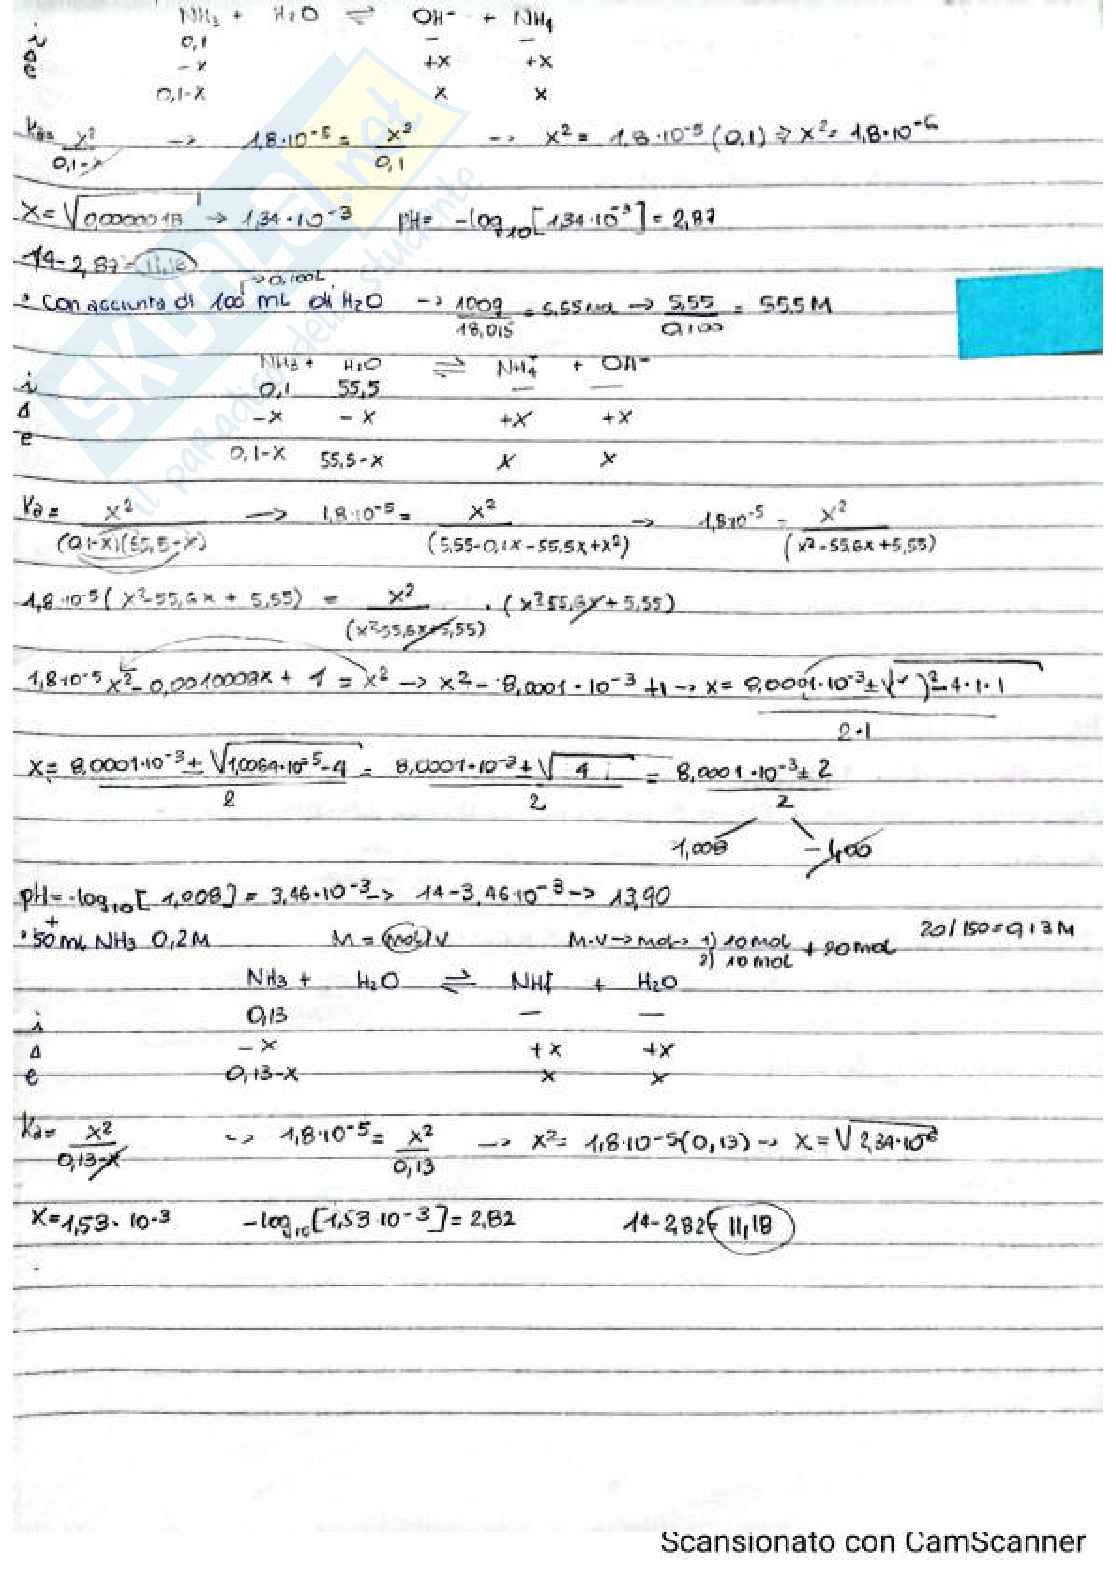 NH₃ + H₂O ⇌ OH⁻ + NH₄
i 0,1 — —
Δ -x +x +x
e 0,1-x x x
Ka= x²/(0,1-x) → 1,8·10⁻⁵ = x²/0,1 → x² = 1,8·10⁻⁵(0,1) ⇒ x² = 1,8·10⁻⁶
X=√0,0000018 → 1,34·10⁻³ pH= -log₁₀[1,34·10⁻³] = 2,87
14-2,87=
→0,100L
• Con aggiunta di 100 mL di H₂O → 100g/18,015 = 5,55mol → 5,55/0,100 = 55,5M
NH₃ + H₂O ⇌ NH₄⁺ + OH⁻
i 0,1 55,5 — —
Δ -x -x +x +x
e 0,1-x 55,5-x x x
Ka= x²/((0,1-x)(55,5-x)) → 1,8·10⁻⁵ = x²/(5,55-0,1x-55,5x+x²) → 1,8·10⁻⁵ = x²/(x²-55,6x+5,55)
1,8·10⁻⁵(x²-55,6x+5,55) = x²/(x²-55,6x+5,55) · (x²55,6x+5,55)
1,8·10⁻⁵x² - 0,0010008x + 1 = x² → x² - 8,0001·10⁻³ +1 → x = 8,0001·10⁻³±√( )²-4·1·1 / 2·1
x= 8,0001·10⁻³±√1,0064·10⁻⁵-4 / 2 = 8,0001·10⁻³±√4 / 2 = 8,0001·10⁻³±2 / 2
1,008 -1,00
pH= -log₁₀[1,008] = 3,46·10⁻³ → 14-3,46·10⁻³ → 13,90
• +50 mL NH₃ 0,2M M = mol/V M·V→mol→ 1) 10mol 2) 10mol + 20mol 20/150=0,13M
NH₃ + H₂O ⇌ NH₄⁺ + H₂O
i 0,13 — —
Δ -x +x +x
e 0,13-x x x
Ka= x²/(0,13-x) → 1,8·10⁻⁵ = x²/0,13 → x² = 1,8·10⁻⁵(0,13) → x = √2,34·10⁻⁶
X=1,53·10⁻³ -log₁₀[1,53·10⁻³] = 2,82 14-2,82= 11,18
SKUOLA.net
il paradiso dello studente
Scansionato con CamScanner